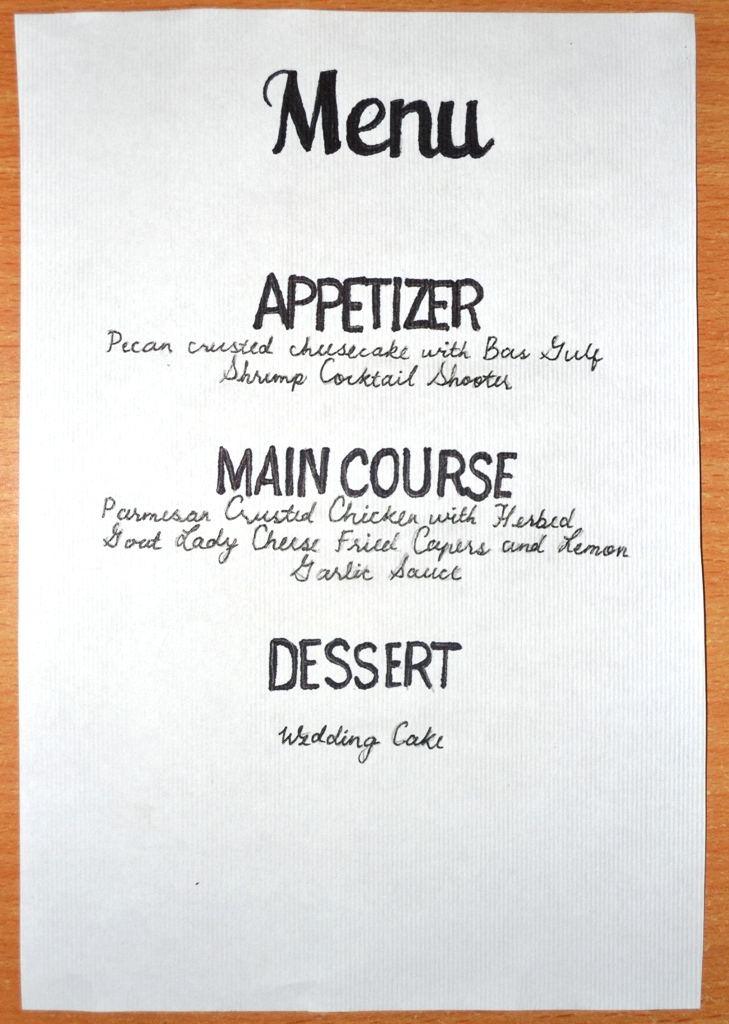 Menu
APPETIZER
Pecan crusted cheesecake with Bas Gulf
Shrimp Cocktail Shooter
MAIN COURSE
Parmesan Crusted Chicken with Herbed
Goat Lady Cheese Fried Capers and Lemon
Garlic Sauce
DESSERT
Wedding Cake